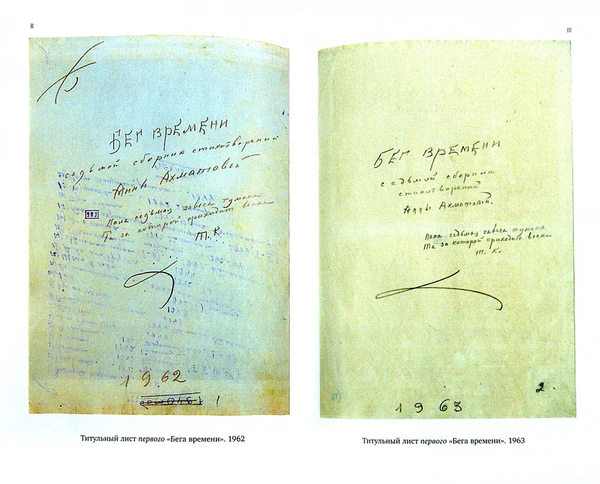 II
БЕГ ВРЕМЕНИ
седьмой сборник стихотворений
Анны Ахматовой
Пала седьмая завеса тумана
Та за которой приходит весна
Т. К.
1962
1
Титульный лист первого «Бега времени». 1962
III
БЕГ ВРЕМЕНИ
седьмой сборник
стихотворений
Анны Ахматовой.
Пала седьмая завеса тумана
Та за которой приходит весна
Т. К.
1963
2.
Титульный лист первого «Бега времени». 1963